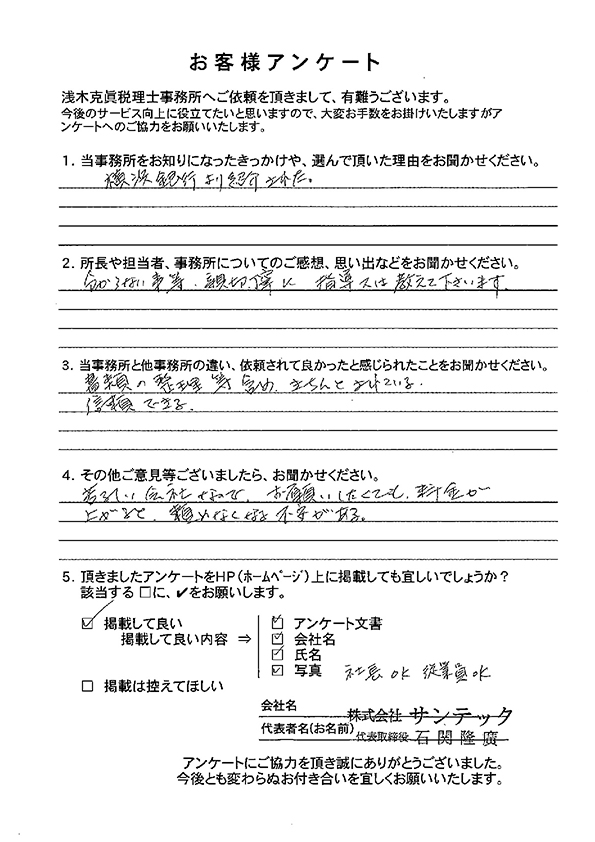 お客様アンケート
浅木克眞税理士事務所へご依頼を頂きまして、有難うございます。
今後のサービス向上に役立てたいと思いますので、大変お手数をお掛けいたしますがア
ンケートへのご協力をお願いいたします。
1. 当事務所をお知りになったきっかけや、選んで頂いた理由をお聞かせください。
横浜銀行より紹介された。
2. 所長や担当者、事務所についてのご感想、思い出などをお聞かせください。
分からない事等、親切丁寧に 指導又は教えて下さいます。
3. 当事務所と他事務所の違い、依頼されて良かったと感じられたことをお聞かせください。
書類の整理等含め、きちんとされている。
信頼できる。
4. その他ご意見等ございましたら、お聞かせください。
苦しい会社なので、お願いしたくても、料金が
上がると、頼めなくなる不安がある。
5. 頂きましたアンケートをHP(ホームページ)上に掲載しても宜しいでしょうか?
該当する □に、✔をお願いします。
☑ 掲載して良い
掲載して良い内容 ⇒
☑ アンケート文書
☑ 会社名
☑ 氏名
☑ 写真 社長OK 従業員OK
□ 掲載は控えてほしい
会社名 株式会社 サンテック
代表者名(お名前) 代表取締役 石関隆廣
アンケートにご協力を頂き誠にありがとうございました。
今後とも変わらぬお付き合いを宜しくお願いいたします。